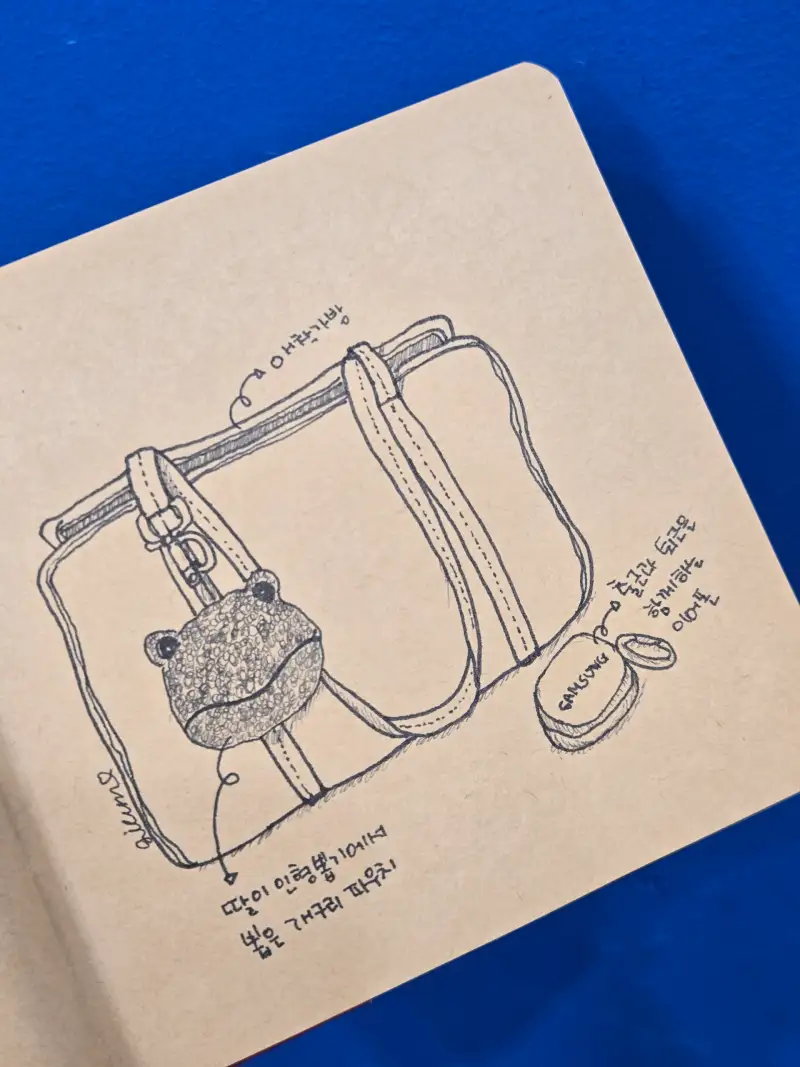 애착가방
출근과 퇴근을
함께하는
이어폰
SAMSUNG
딸이 인형뽑기에서
뽑은 개구리 파우치